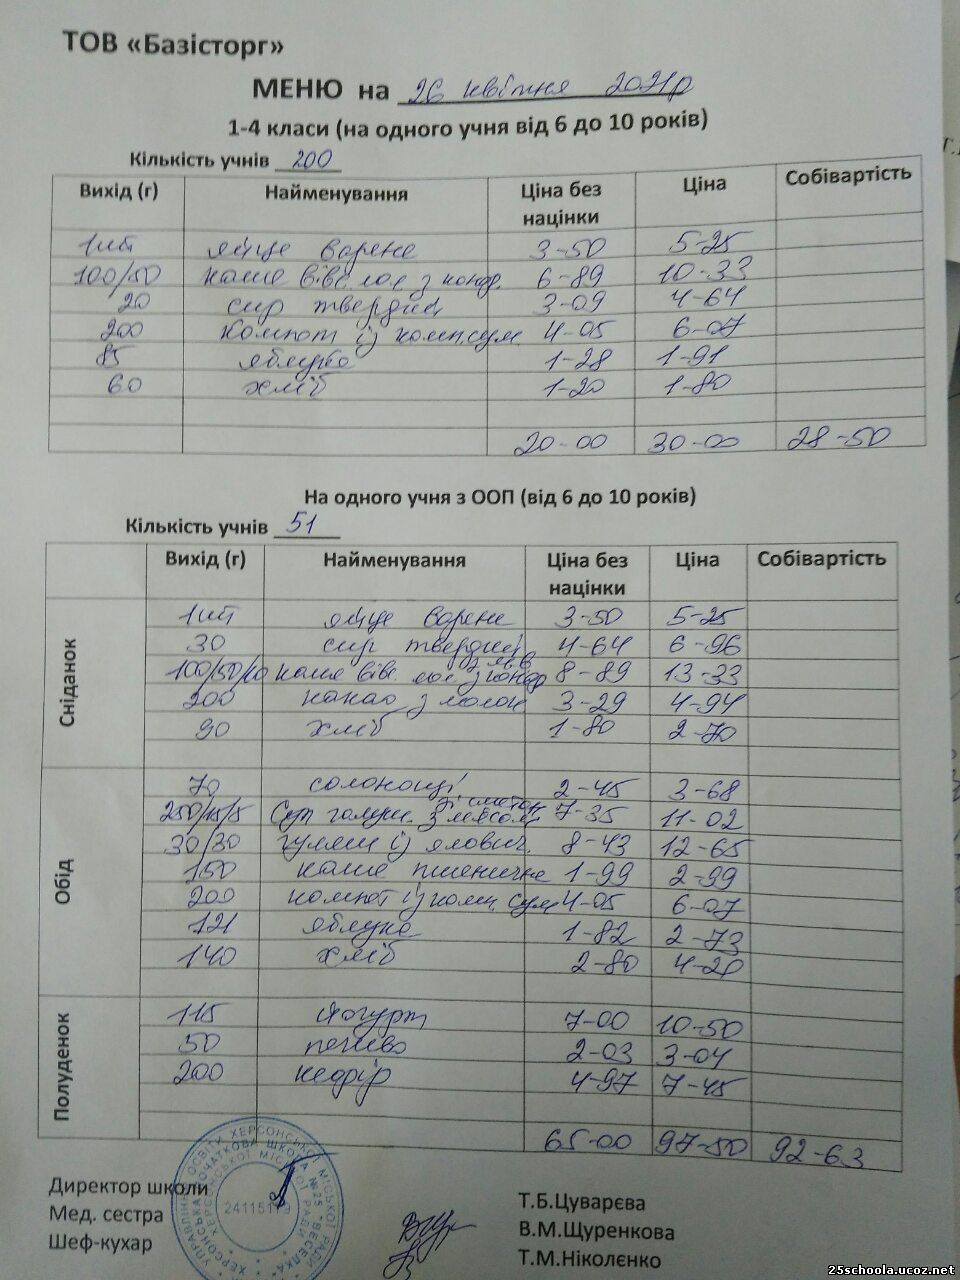 ТОВ «Базісторг»
МЕНЮ на 26 квітня 2021р
1-4 класи (на одного учня від 6 до 10 років)
Кількість учнів 200
Вихід (г) Найменування Ціна без націнки Ціна Собівартість
1шт яйце варене 3-50 5-25
100/50 каша вівс. мол з конд. 6-89 10-33
20 сир твердий 3-09 4-64
200 компот із комп.сум. 4-05 6-07
85 яблуко 1-28 1-91
60 хліб 1-20 1-80
20-00 30-00 28-50
На одного учня з ООП (від 6 до 10 років)
Кількість учнів 51
Вихід (г) Найменування Ціна без націнки Ціна Собівартість
Сніданок
1шт яйце варене 3-50 5-25
30 сир твердий 4-64 6-96
100/50/10 каша вівс. мол з конд 8-89 13-33
200 какао з молок 3-29 4-94
90 хліб 1-80 2-70
Обід
70 солонощі 2-45 3-68
250/15/5 Суп галуш. з мясом зі сметан 7-35 11-02
30/30 гуляш із ялович. 8-43 12-65
150 каша пшенична 1-99 2-99
200 компот із комп. сум 4-05 6-07
121 яблуко 1-82 2-73
140 хліб 2-80 4-20
Полуденок
115 йогурт 7-00 10-50
50 печиво 2-03 3-04
200 кефір 4-97 7-45
65-00 97-50 92-63
Директор школи Т.Б.Цуварєва
Мед. сестра В.М.Щуренкова
Шеф-кухар Т.М.Ніколєнко
УПРАВЛІННЯ ОСВІТИ ХЕРСОНСЬКОЇ МІСЬКОЇ РАДИ
ПОЧАТКОВА ШКОЛА №25 "ВЕСЕЛКА"
ХЕРСОНСЬКОЇ МІСЬКОЇ РАДИ
25schoola.ucoz.net